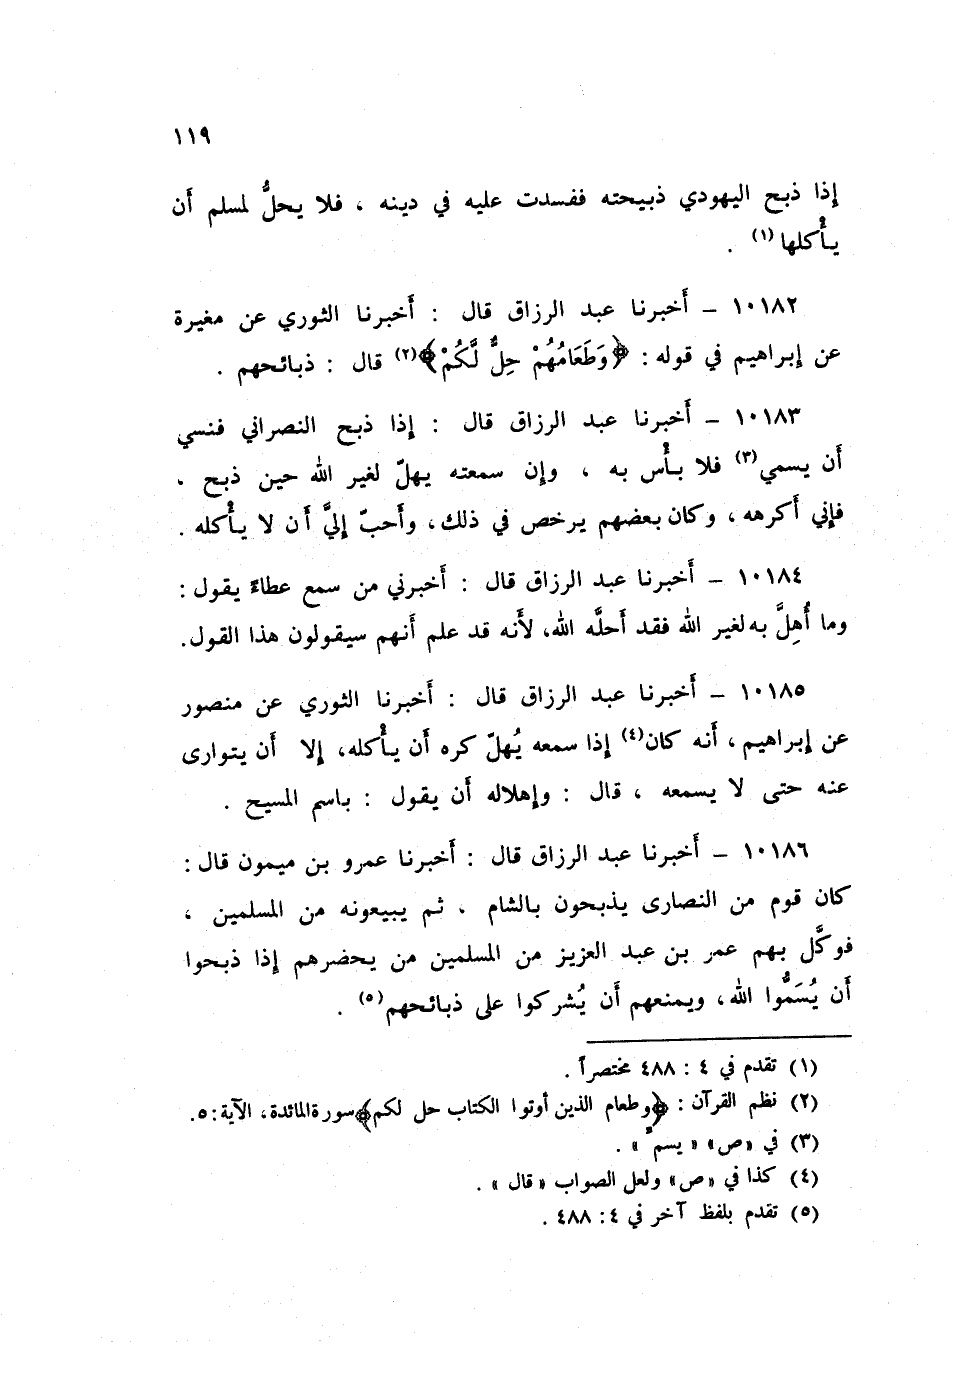 ١١٩
إذا ذبح اليهودي ذبيحته ففسدت عليه في دينه ، فلا يحلُّ لمسلم أَن
يأْكلها (١) .
١٠١٨٢ – أَخبرنا عبد الرزاق قال : أَخبرنا الثوري عن مغيرة
عن إبراهيم في قوله : ﴿وَطَعَامُهُمْ حِلٌّ لَّكُمْ﴾ (٢) قال : ذبائحهم .
١٠١٨٣ – أَخبرنا عبد الرزاق قال : إذا ذبح النصراني فنسي
أَن يسمي (٣) فلا بأْس به ، وإن سمعته يهلّ لغير الله حين ذبح ،
فإني أَكرهه ، وكان بعضهم يرخص في ذلك، وأَحبّ إليَّ أَن لا يأْكله .
١٠١٨٤ – أَخبرنا عبد الرزاق قال : أَخبرني من سمع عطاءً يقول :
وما أُهِلَّ به لغير الله فقد أَحلَّه الله، لأَنه قد علم أَنهم سيقولون هذا القول.
١٠١٨٥ – أَخبرنا عبد الرزاق قال : أَخبرنا الثوري عن منصور
عن إبراهيم ، أَنه كان (٤) إذا سمعه يُهلّ كره أَن يأْكله، إلا أَن يتوارى
عنه حتى لا يسمعه ، قال : وإهلاله أَن يقول : باسم المسيح .
١٠١٨٦ – أَخبرنا عبد الرزاق قال : أَخبرنا عمرو بن ميمون قال :
كان قوم من النصارى يذبحون بالشام ، ثم يبيعونه من المسلمين ،
فوكَّل بهم عمر بن عبد العزيز من المسلمين من يحضرهم إذا ذبحوا
أَن يُسَمُّوا الله، ويمنعهم أَن يُشركوا على ذبائحهم (٥) .
(١) تقدم في ٤ : ٤٨٨ مختصراً .
(٢) نظم القرآن : ﴿وطعام الذين أوتوا الكتاب حل لكم﴾ سورة المائدة، الآية: ٥.
(٣) في «ص» « يسم » .
(٤) كذا في «ص» ولعل الصواب « قال » .
(٥) تقدم بلفظ آخر في ٤: ٤٨٨ .